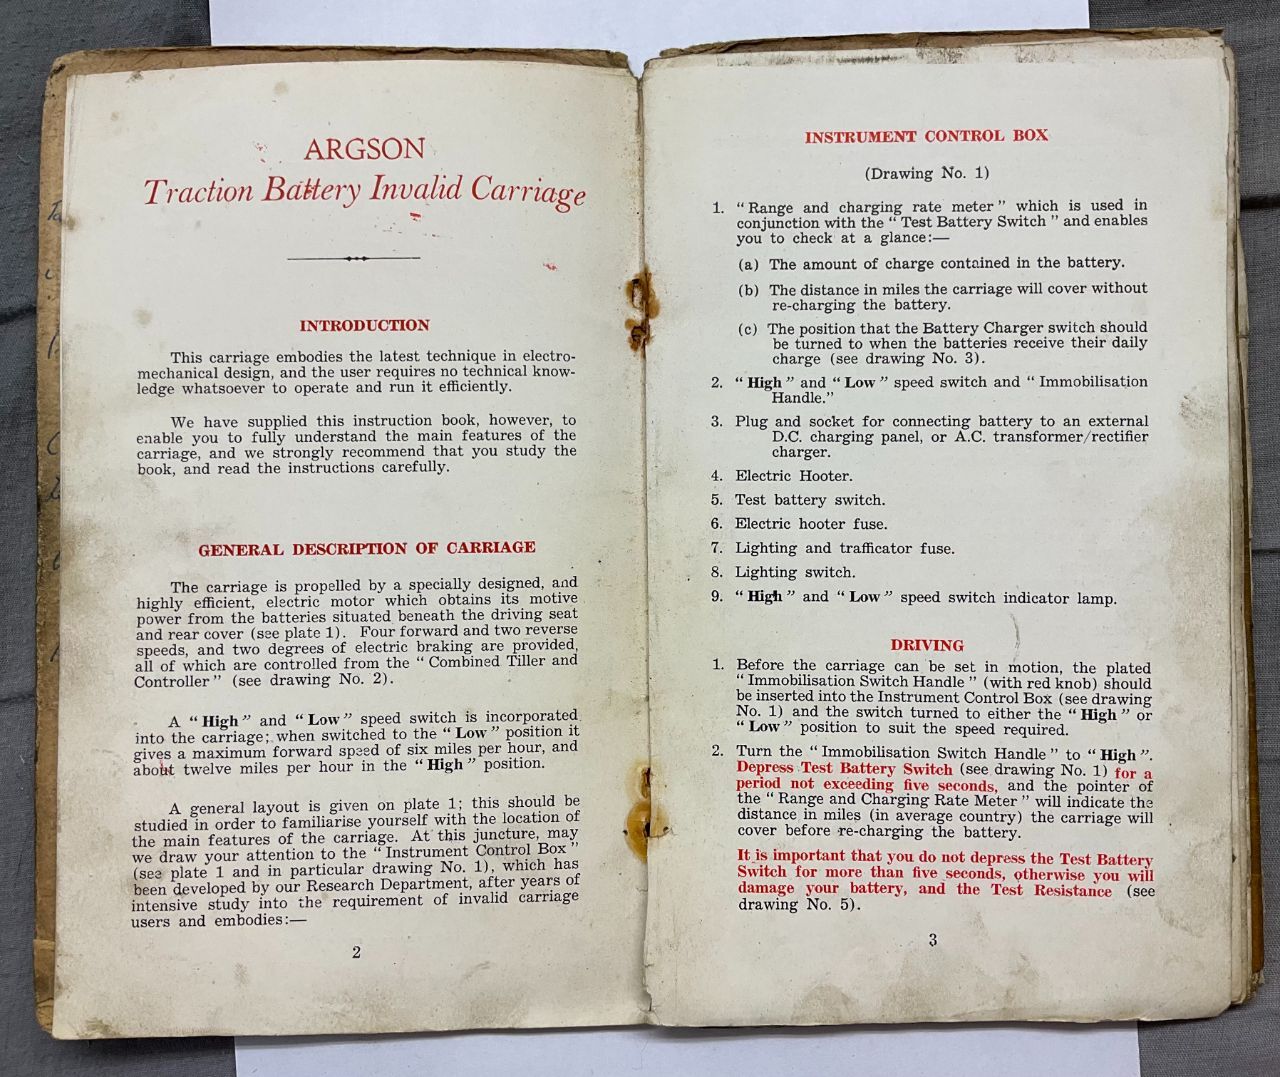 ARGSON
Traction Battery Invalid Carriage
INTRODUCTION
This carriage embodies the latest technique in electro-
mechanical design, and the user requires no technical know-
ledge whatsoever to operate and run it efficiently.
We have supplied this instruction book, however, to
enable you to fully understand the main features of the
carriage, and we strongly recommend that you study the
book, and read the instructions carefully.
GENERAL DESCRIPTION OF CARRIAGE
The carriage is propelled by a specially designed, and
highly efficient, electric motor which obtains its motive
power from the batteries situated beneath the driving seat
and rear cover (see plate 1). Four forward and two reverse
speeds, and two degrees of electric braking are provided,
all of which are controlled from the "Combined Tiller and
Controller" (see drawing No. 2).
A "High" and "Low" speed switch is incorporated
into the carriage; when switched to the "Low" position it
gives a maximum forward speed of six miles per hour, and
about twelve miles per hour in the "High" position.
A general layout is given on plate 1; this should be
studied in order to familiarise yourself with the location of
the main features of the carriage. At this juncture, may
we draw your attention to the "Instrument Control Box"
(see plate 1 and in particular drawing No. 1), which has
been developed by our Research Department, after years of
intensive study into the requirement of invalid carriage
users and embodies:—
2
INSTRUMENT CONTROL BOX
(Drawing No. 1)
1. "Range and charging rate meter" which is used in
conjunction with the "Test Battery Switch" and enables
you to check at a glance:—
(a) The amount of charge contained in the battery.
(b) The distance in miles the carriage will cover without
re-charging the battery.
(c) The position that the Battery Charger switch should
be turned to when the batteries receive their daily
charge (see drawing No. 3).
2. "High" and "Low" speed switch and "Immobilisation
Handle."
3. Plug and socket for connecting battery to an external
D.C. charging panel, or A.C. transformer/rectifier
charger.
4. Electric Hooter.
5. Test battery switch.
6. Electric hooter fuse.
7. Lighting and trafficator fuse.
8. Lighting switch.
9. "High" and "Low" speed switch indicator lamp.
DRIVING
1. Before the carriage can be set in motion, the plated
"Immobilisation Switch Handle" (with red knob) should
be inserted into the Instrument Control Box (see drawing
No. 1) and the switch turned to either the "High" or
"Low" position to suit the speed required.
2. Turn the "Immobilisation Switch Handle" to "High".
Depress Test Battery Switch (see drawing No. 1) for a
period not exceeding five seconds, and the pointer of
the "Range and Charging Rate Meter" will indicate the
distance in miles (in average country) the carriage will
cover before re-charging the battery.
It is important that you do not depress the Test Battery
Switch for more than five seconds, otherwise you will
damage your battery, and the Test Resistance (see
drawing No. 5).
3